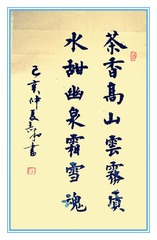 茶香高山雲霧質
水甜幽泉霜雪魂
己亥仲夏書